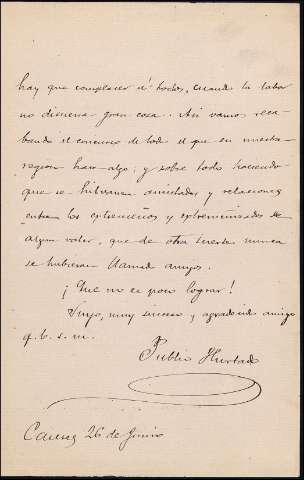 hay que complacer á todos, cuando la labor
no disuena gran cosa. Asi vamos reca-
bando el concurso de todo el que en nuestra
region hace algo; y sobre todo haciendo
que se hilvanen amistades y relaciones
entre los extremeños y extremeñizados de
algun valer, que de otra suerte nunca
se hubieran llamado amigos.
¡Que no es poco lograr!
Suyo, muy sincero y agradecido amigo
q. b. s. m.
Publio Hurtado
Caceres 26 de Junio